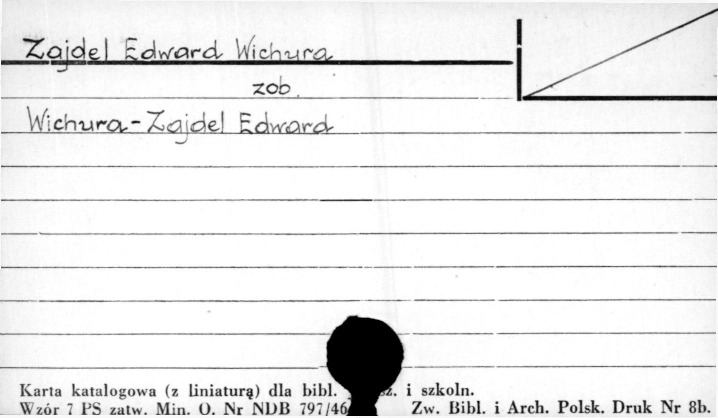 Zajdel Edward Wichura
zob.
Wichura-Zajdel Edward
Karta katalogowa (z liniaturą) dla bibl. i szkoln.
Wzór 7 PS zatw. Min. O. Nr NDB 797/46 Zw. Bibl. i Arch. Polsk. Druk Nr 8b.